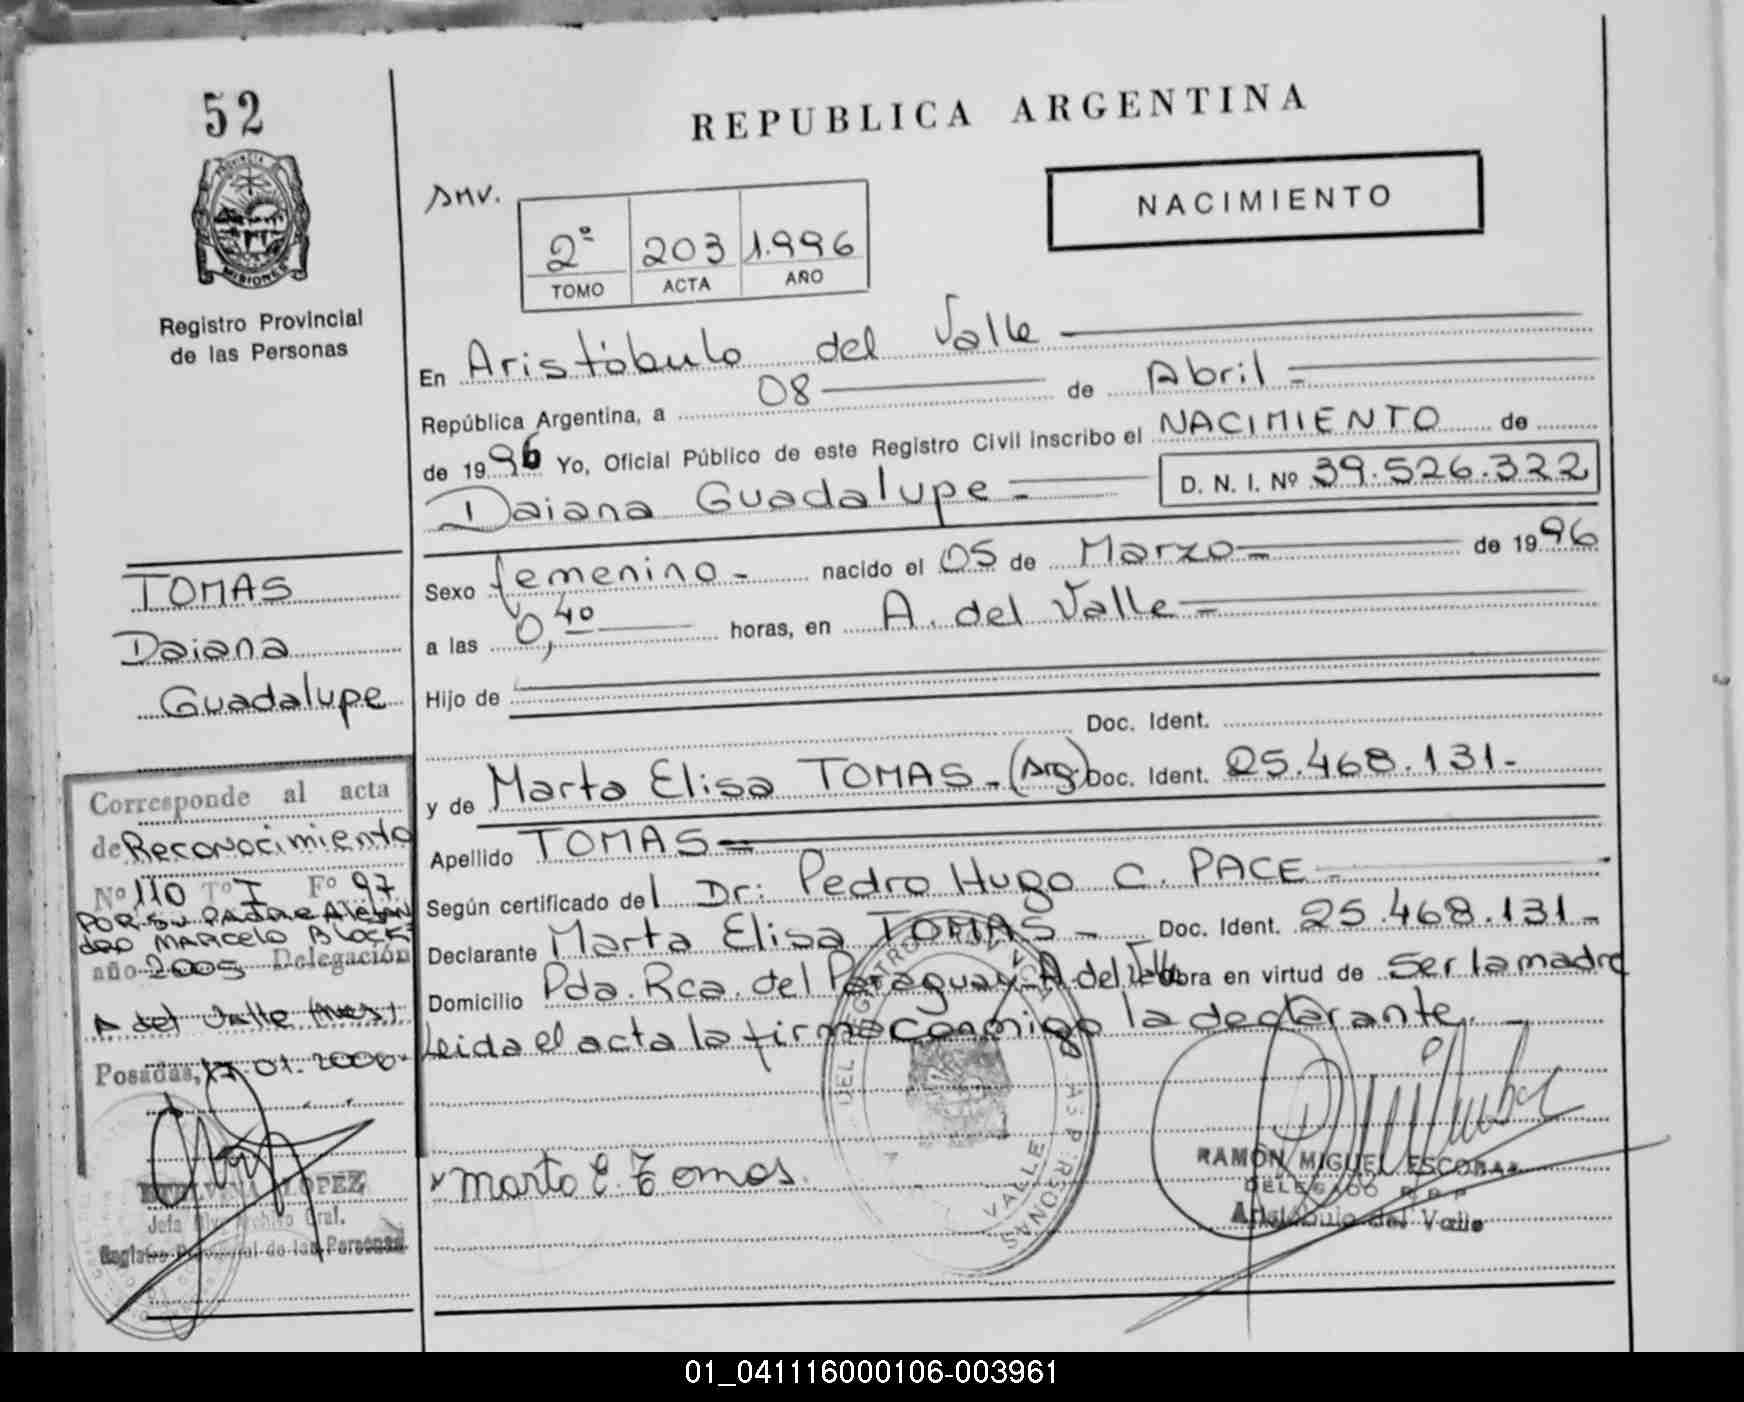 52
PROVINCIA
MISIONES
Registro Provincial
de las Personas
REPUBLICA ARGENTINA
NACIMIENTO
snv.
2º 203 1.996
TOMO ACTA AÑO
En Aristóbulo del Valle
República Argentina, a 08 de Abril
de 1996 Yo, Oficial Público de este Registro Civil inscribo el NACIMIENTO de
Daiana Guadalupe D. N. I. Nº 39.526.322
Sexo femenino nacido el 05 de Marzo de 1996
a las 0,40 horas, en A. del Valle
Hijo de
Doc. Ident.
y de Marta Elisa TOMAS (Arg.) Doc. Ident. 25.468.131
Apellido TOMAS
Según certificado del Dr: Pedro Hugo C. PACE
Declarante Marta Elisa TOMAS Doc. Ident. 25.468.131
Domicilio Pda. Rca. del Paraguay A. del Valle obra en virtud de Ser la madre
Leida el acta la firma conmigo la declarante.
Marta E. Tomas.
VALLE
RAMON MIGUEL ESCOBAR
DELEGADO R.P.P.
Aristóbulo del Valle
TOMAS
Daiana
Guadalupe
Corresponde al acta
de Reconocimiento
Nº 110 Tº I Fº 97
POR SU PADRE Alejan
dro MARCELO BLOCK
año 2005 Delegación
A del Valle
Posadas, 17.01.2006
LOPEZ
Jefa Gral.
Registro Provincial de las Personas
01_041116000106-003961